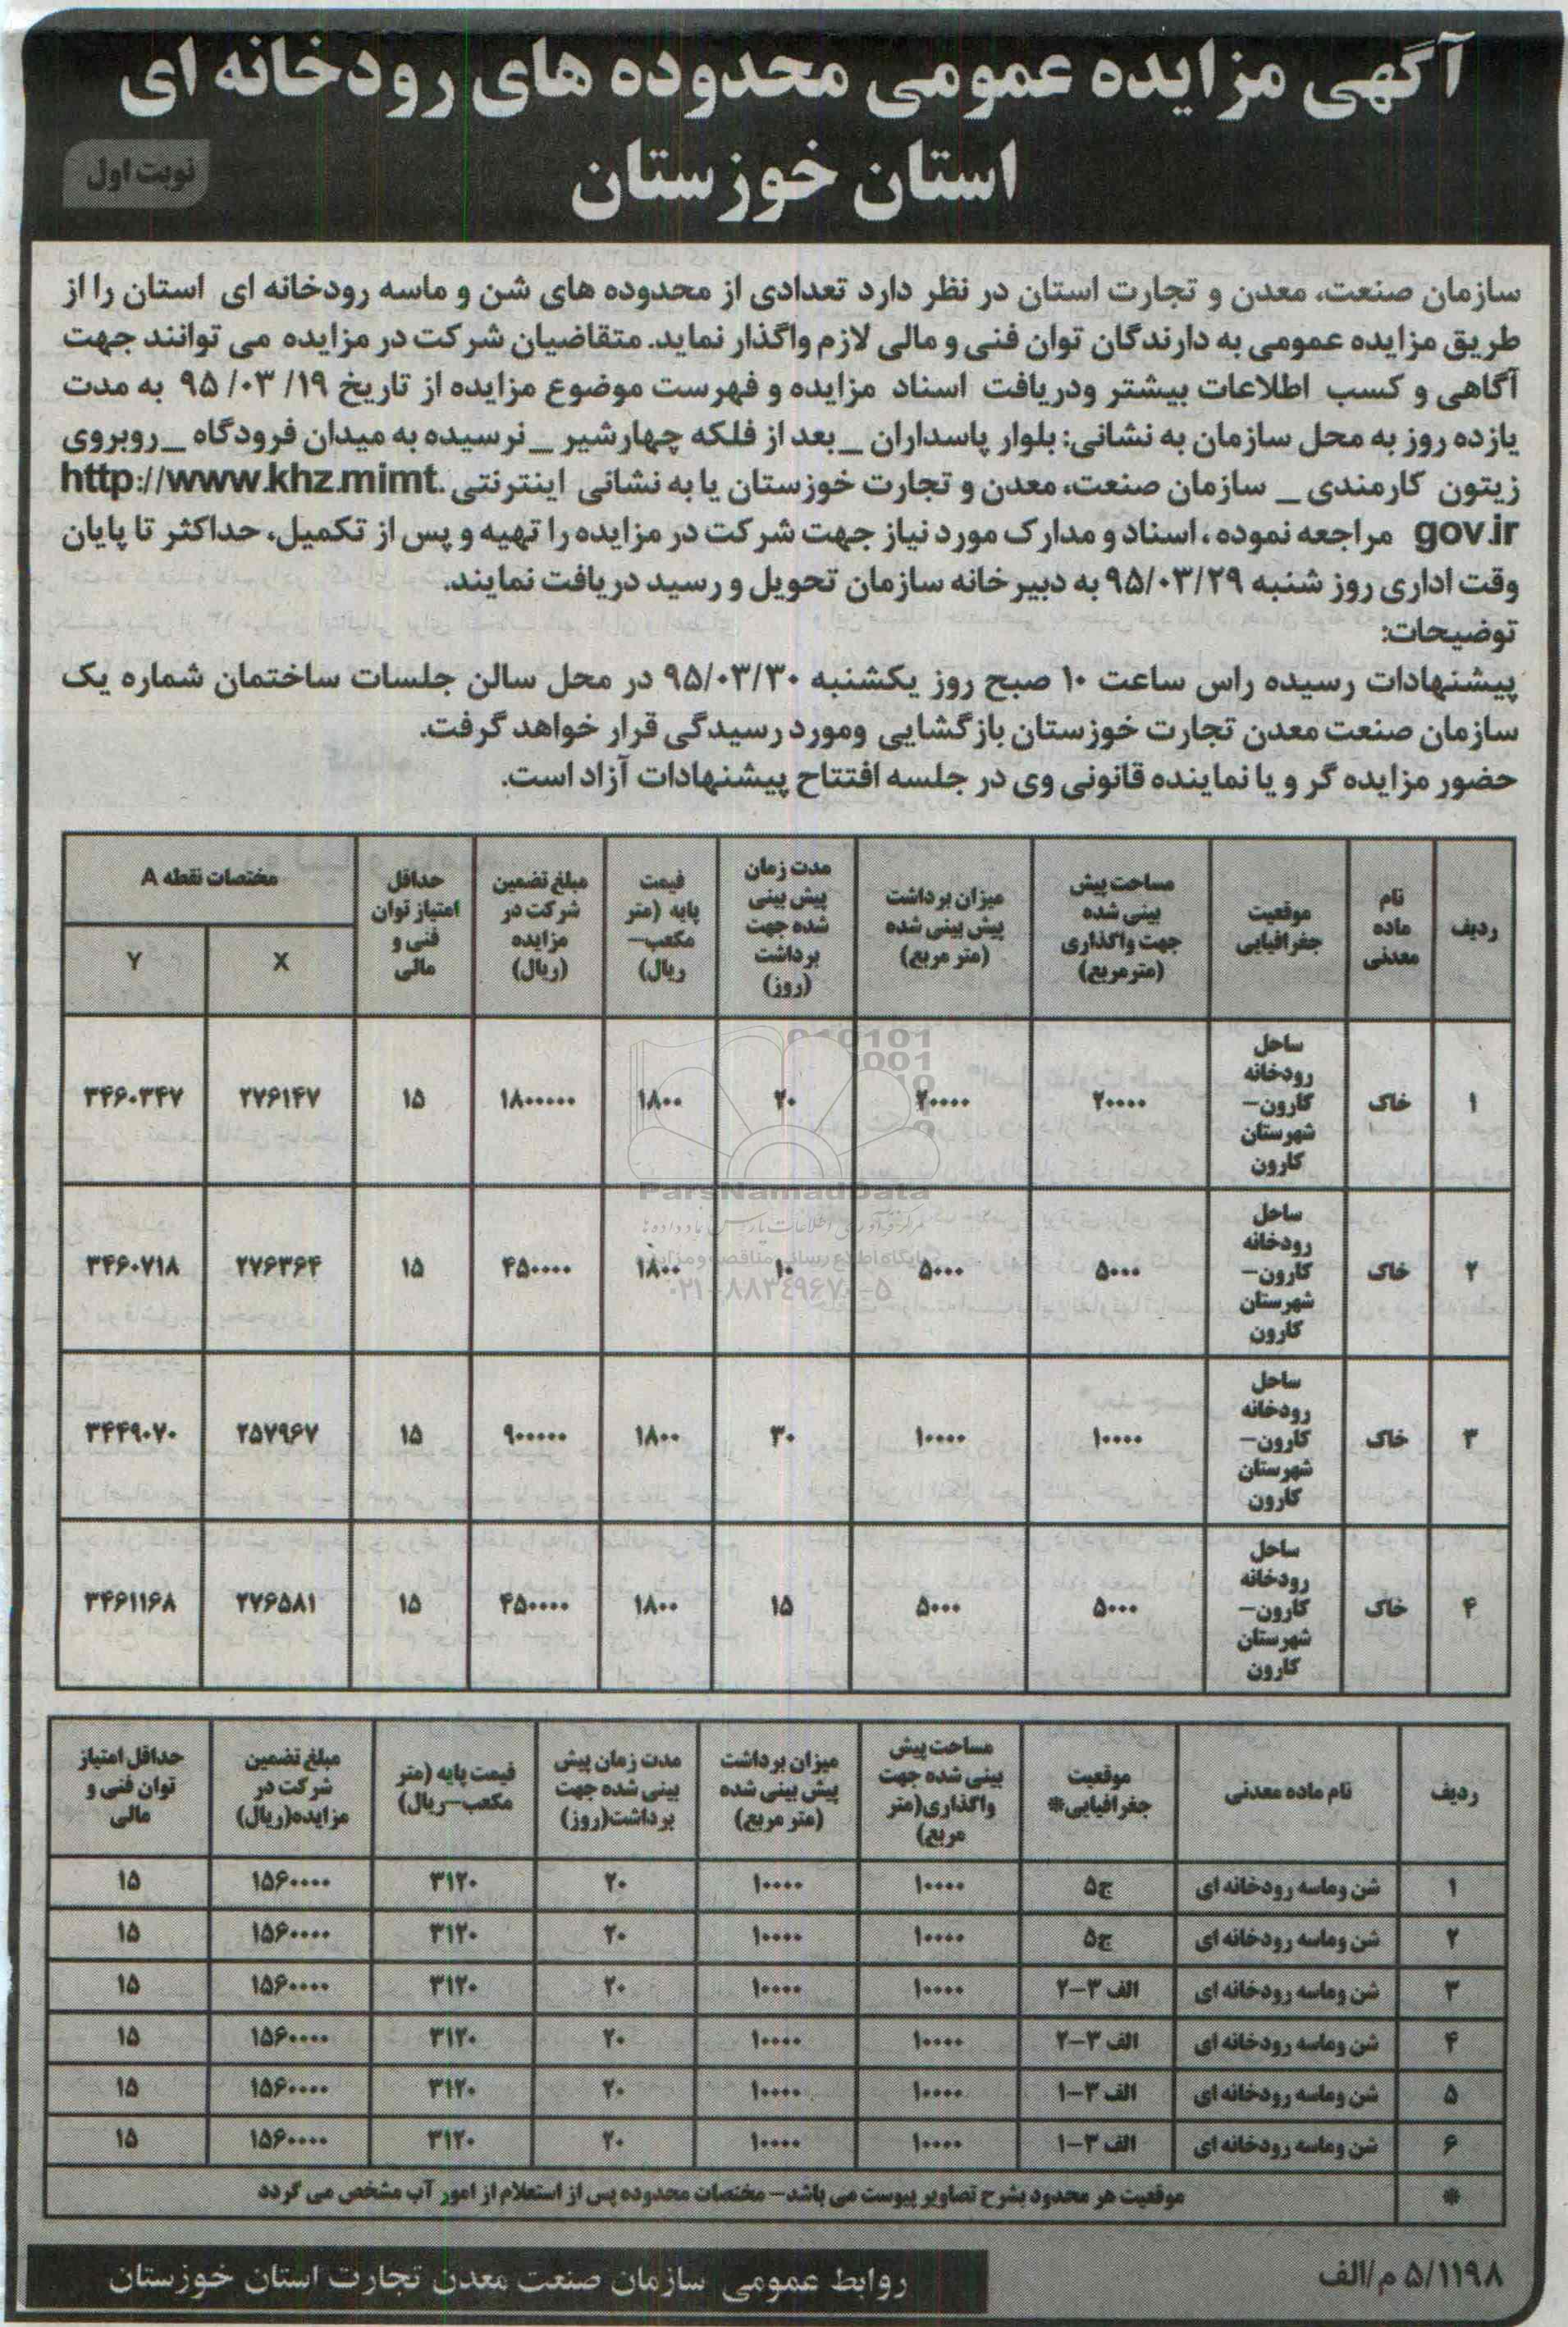 آگهی مزایده عمومی محدوده های رودخانه ای
استان خوزستان
نوبت اول
سازمان صنعت، معدن و تجارت استان در نظر دارد تعدادی از محدوده های شن و ماسه رودخانه ای استان را از
طریق مزایده عمومی به دارندگان توان فنی و مالی لازم واگذار نماید. متقاضیان شرکت در مزایده می توانند جهت
آگاهی و کسب اطلاعات بیشتر ودریافت اسناد مزایده و فهرست موضوع مزایده از تاریخ ۱۹/ ۰۳/ ۹۵ به مدت
یازده روز به محل سازمان به نشانی: بلوار پاسداران _ بعد از فلکه چهارشیر _ نرسیده به میدان فرودگاه _ روبروی
زیتون کارمندی _ سازمان صنعت، معدن و تجارت خوزستان یا به نشانی اینترنتی http://www.khz.mimt.
gov.ir مراجعه نموده ، اسناد و مدارک مورد نیاز جهت شرکت در مزایده را تهیه و پس از تکمیل، حداکثر تا پایان
وقت اداری روز شنبه ۹۵/۰۳/۲۹ به دبیرخانه سازمان تحویل و رسید دریافت نمایند.
توضیحات:
پیشنهادات رسیده راس ساعت ۱۰ صبح روز یکشنبه ۹۵/۰۳/۳۰ در محل سالن جلسات ساختمان شماره یک
سازمان صنعت معدن تجارت خوزستان بازگشایی ومورد رسیدگی قرار خواهد گرفت.
حضور مزایده گر و یا نماینده قانونی وی در جلسه افتتاح پیشنهادات آزاد است.
ردیف نام ماده معدنی موقعیت جغرافیایی مساحت پیش بینی شده جهت واگذاری (مترمربع) میزان برداشت پیش بینی شده (متر مربع) مدت زمان پیش بینی شده جهت برداشت (روز) قیمت پایه (متر مکعب– ریال) مبلغ تضمین شرکت در مزایده (ریال) حداقل امتیاز توان فنی و مالی مختصات نقطه A
X Y
۱ خاک ساحل رودخانه کارون– شهرستان کارون ۲۰۰۰۰ ۲۰۰۰۰ ۲۰ ۱۸۰۰ ۱۸۰۰۰۰۰ ۱۵ ۲۷۶۱۴۷ ۳۴۶۰۳۴۷
۲ خاک ساحل رودخانه کارون– شهرستان کارون ۵۰۰۰ ۵۰۰۰ ۱۰ ۱۸۰۰ ۴۵۰۰۰۰ ۱۵ ۲۷۶۳۶۴ ۳۴۶۰۷۱۸
۳ خاک ساحل رودخانه کارون– شهرستان کارون ۱۰۰۰۰ ۱۰۰۰۰ ۳۰ ۱۸۰۰ ۹۰۰۰۰۰ ۱۵ ۲۵۷۹۶۷ ۳۴۴۹۰۷۰
۴ خاک ساحل رودخانه کارون– شهرستان کارون ۵۰۰۰ ۵۰۰۰ ۱۵ ۱۸۰۰ ۴۵۰۰۰۰ ۱۵ ۲۷۶۵۸۱ ۳۴۶۱۱۶۸
ParsNamadData
ردیف نام ماده معدنی موقعیت جغرافیایی* مساحت پیش بینی شده جهت واگذاری(متر مربع) میزان برداشت پیش بینی شده (متر مربع) مدت زمان پیش بینی شده جهت برداشت(روز) قیمت پایه (متر مکعب–ریال) مبلغ تضمین شرکت در مزایده(ریال) حداقل امتیاز توان فنی و مالی
۱ شن وماسه رودخانه ای ج۵ ۱۰۰۰۰ ۱۰۰۰۰ ۲۰ ۳۱۲۰ ۱۵۶۰۰۰۰ ۱۵
۲ شن وماسه رودخانه ای ج۵ ۱۰۰۰۰ ۱۰۰۰۰ ۲۰ ۳۱۲۰ ۱۵۶۰۰۰۰ ۱۵
۳ شن وماسه رودخانه ای الف ۳–۲ ۱۰۰۰۰ ۱۰۰۰۰ ۲۰ ۳۱۲۰ ۱۵۶۰۰۰۰ ۱۵
۴ شن وماسه رودخانه ای الف ۳–۲ ۱۰۰۰۰ ۱۰۰۰۰ ۲۰ ۳۱۲۰ ۱۵۶۰۰۰۰ ۱۵
۵ شن وماسه رودخانه ای الف ۳–۱ ۱۰۰۰۰ ۱۰۰۰۰ ۲۰ ۳۱۲۰ ۱۵۶۰۰۰۰ ۱۵
۶ شن وماسه رودخانه ای الف ۳–۱ ۱۰۰۰۰ ۱۰۰۰۰ ۲۰ ۳۱۲۰ ۱۵۶۰۰۰۰ ۱۵
* موقعیت هر محدود بشرح تصاویر پیوست می باشد– مختصات محدوده پس از استعلام از امور آب مشخص می گردد
۵/۱۱۹۸ م/الف
روابط عمومی سازمان صنعت معدن تجارت استان خوزستان